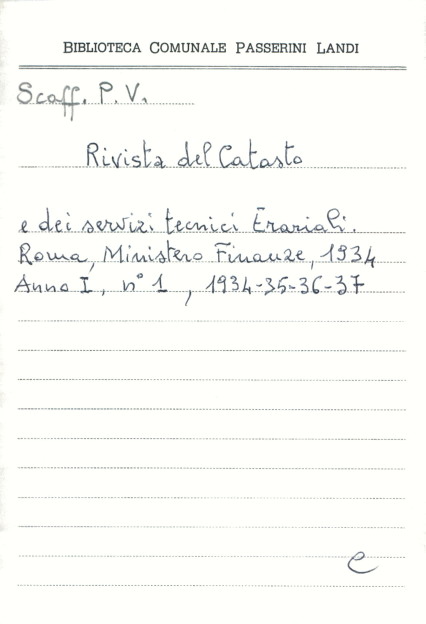 BIBLIOTECA COMUNALE PASSERINI LANDI
Scaff. P. V.
Rivista del Catasto
e dei servizi tecnici Erariali.
Roma, Ministero Finanze, 1934
Anno I, n° 1, 1934-35-36-37
e